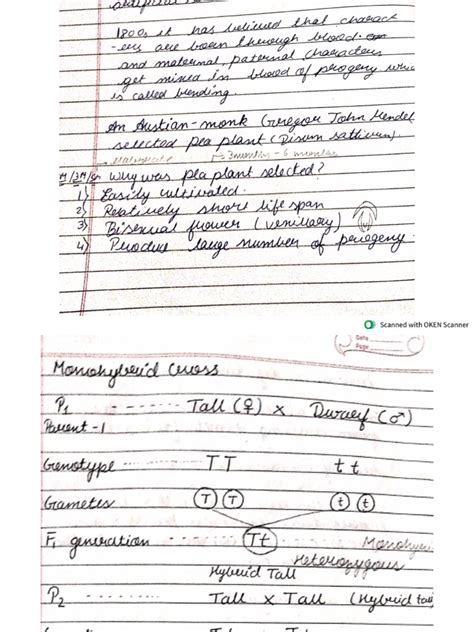 1800s, it has believed that charact
-ers are born through blood.
and maternal, paternal characters
get mixed in blood of progeny
is called blending.
An Austian-monk Gregor John Mendel
selected pea plant (Pisum sativum).
3months - 6 months
Why was pea plant selected?
1) Easily cultivated.
2) Relatively short life span
3) Bisexual flower (vexillary)
4) Produce large number of progeny
Scanned with OKEN Scanner
Date
Page
Monohybrid Cross
P1 ------- Tall (♀) x Dwarf (♂)
Parent-1
Genotype ------- TT tt
Gametes T T t t
F1 generation ------- Tt ------- Monohy
Heterozygous
Hybrid Tall
P2 Tall x Tall (Hybrid tall